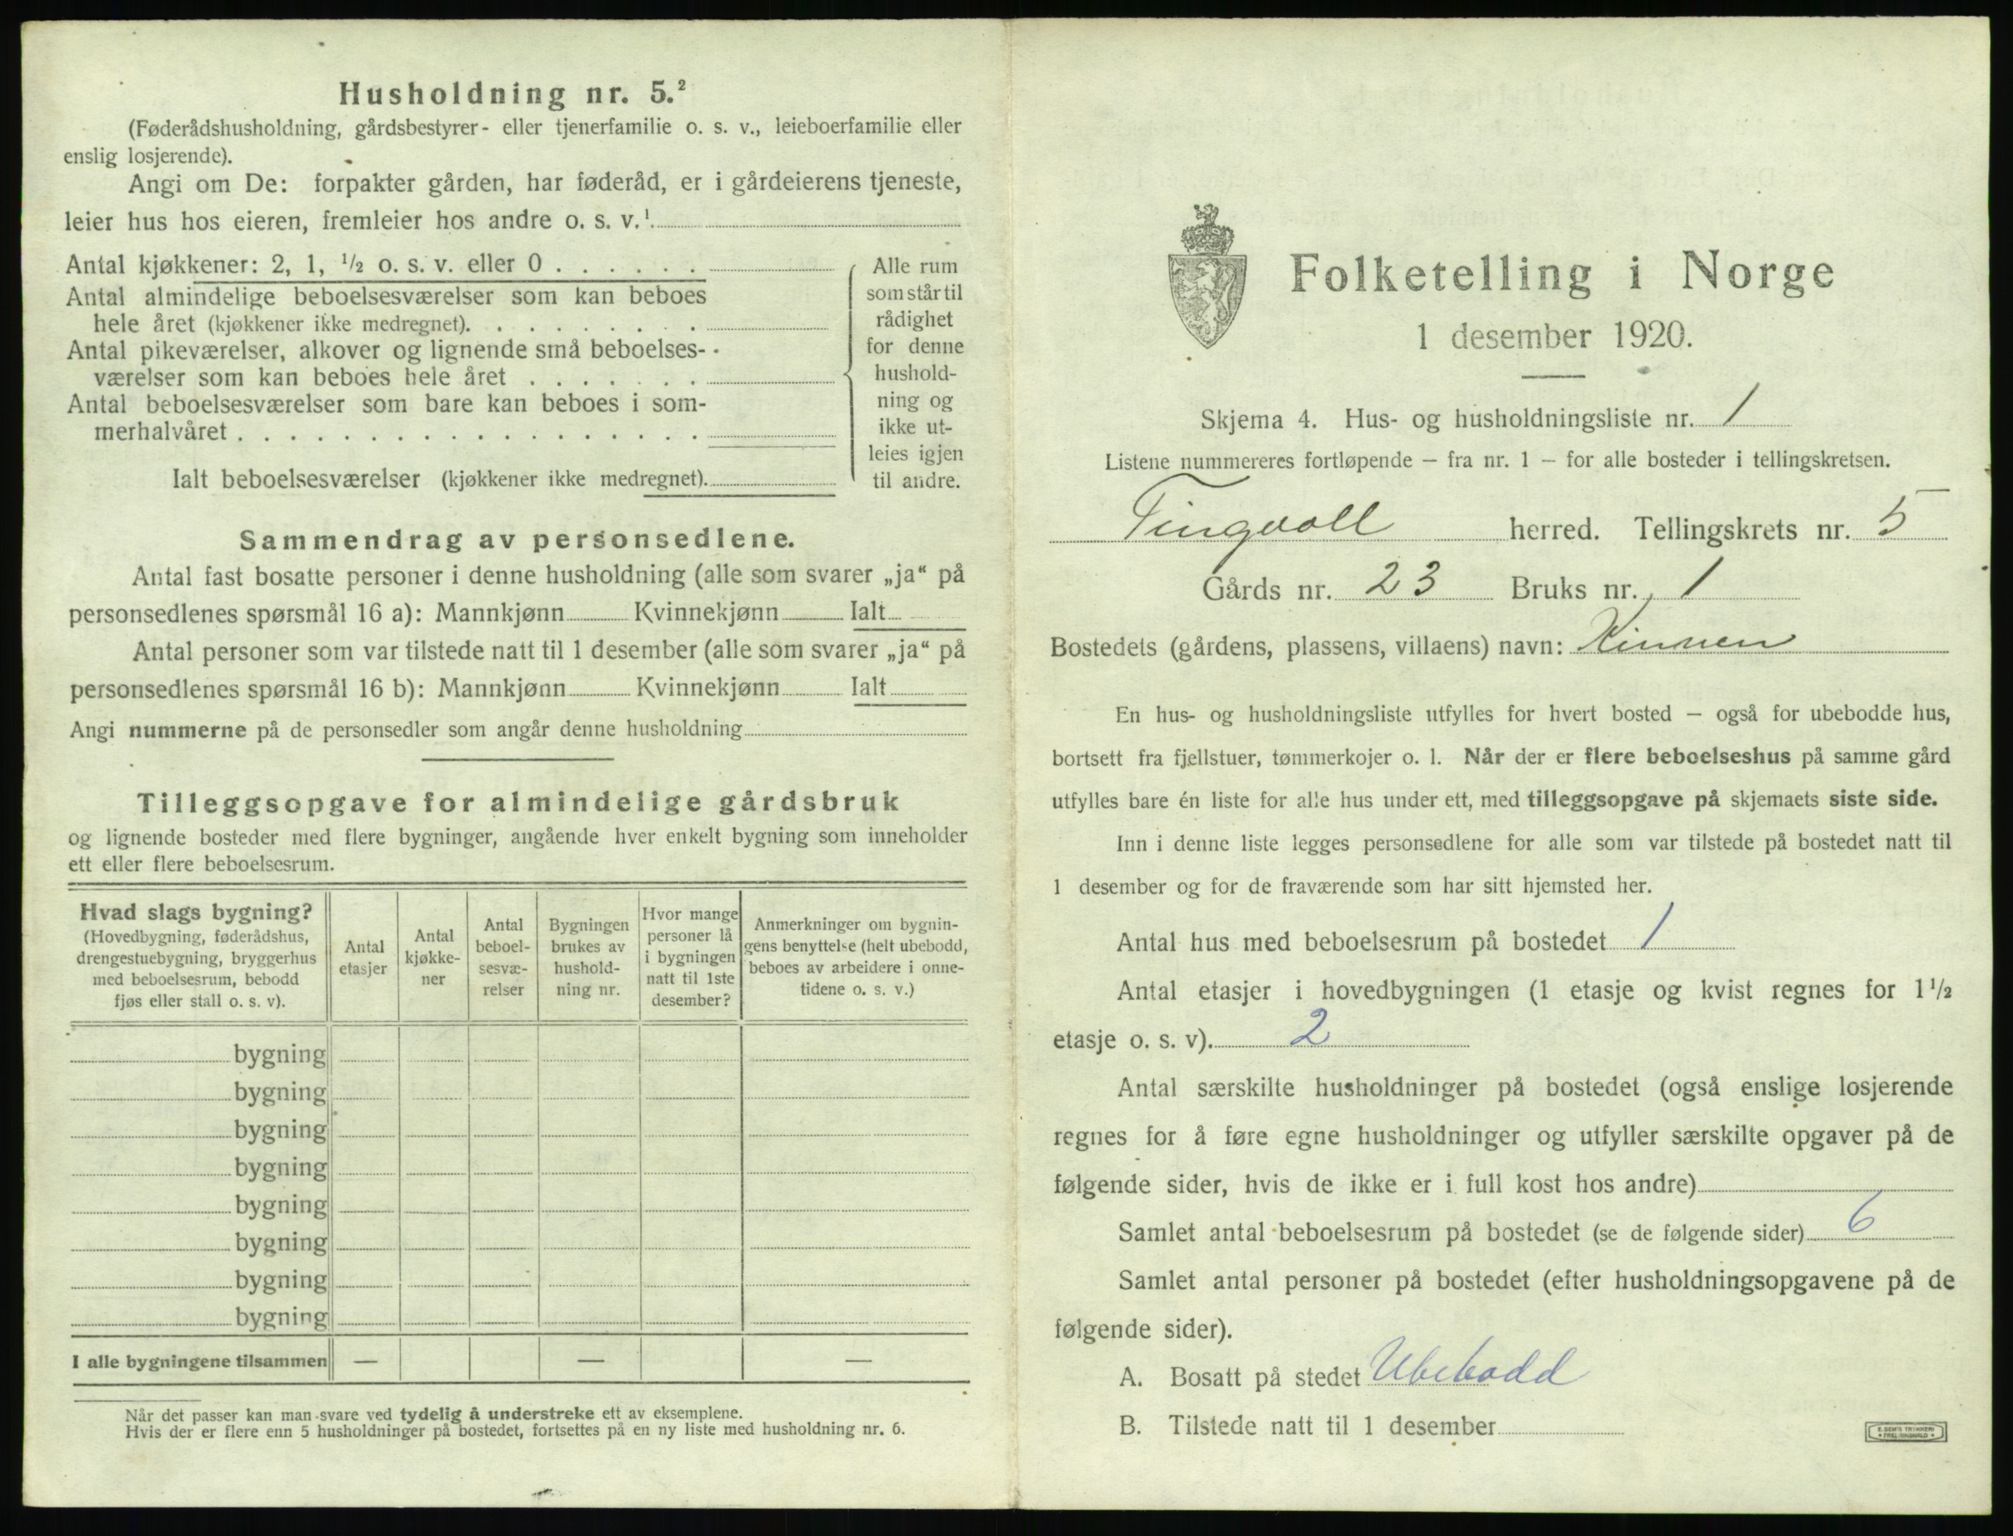 Husholdning nr. 5.²
(Føderådshusholdning, gårdsbestyrer- eller tjenerfamilie o. s. v., leieboerfamilie eller
enslig losjerende).
Angi om De: forpakter gården, har føderåd, er i gårdeierens tjeneste,
leier hus hos eieren, fremleier hos andre o. s. v.¹
Antal kjøkkener: 2, 1, ½ o. s. v. eller 0 . . . . . .
Antal almindelige beboelsesværelser som kan beboes
hele året (kjøkkener ikke medregnet). . . . . . . . .
Antal pikeværelser, alkover og lignende små beboelses-
værelser som kan beboes hele året . . . . . . .
Antal beboelsesværelser som bare kan beboes i som-
merhalvåret . . . . . . . . . . . . . . . . . .
Ialt beboelsesværelser (kjøkkener ikke medregnet).
Alle rum
som står til
rådighet
for denne
hushold-
ning og
ikke ut-
leies igjen
til andre.
Sammendrag av personsedlene.
Antal fast bosatte personer i denne husholdning (alle som svarer „ja“ på
personsedlenes spørsmål 16 a): Mannkjønn Kvinnekjønn Ialt
Antal personer som var tilstede natt til 1 desember (alle som svarer „ja“ på
personsedlenes spørsmål 16 b): Mannkjønn Kvinnekjønn Ialt
Angi nummerne på de personsedler som angår denne husholdning
Tilleggsopgave for almindelige gårdsbruk
og lignende bosteder med flere bygninger, angående hver enkelt bygning som inneholder
ett eller flere beboelsesrum.
Hvad slags bygning?
(Hovedbygning, føderådshus,
drengestuebygning, bryggerhus
med beboelsesrum, bebodd
fjøs eller stall o. s. v).
Antal
etasjer
Antal
kjøkke-
ner
Antal
beboel-
sesvæ-
relser
Bygningen
brukes av
hushold-
ning nr.
Hvor mange
personer lå
i bygningen
natt til 1ste
desember?
Anmerkninger om bygnin-
gens benyttelse (helt ubebodd,
beboes av arbeidere i onne-
tidene o. s. v.)
bygning
bygning
bygning
bygning
bygning
bygning
bygning
bygning
I alle bygningene tilsammen — — —
Når det passer kan man svare ved tydelig å understreke ett av eksemplene.
Hvis der er flere enn 5 husholdninger på bostedet, fortsettes på en ny liste med husholdning nr. 6.
Folketelling i Norge
1 desember 1920.
Skjema 4. Hus- og husholdningsliste nr. 1
Listene nummereres fortløpende – fra nr. 1 – for alle bosteder i tellingskretsen.
Tingvoll herred. Tellingskrets nr. 5
Gårds nr. 23 Bruks nr. 1
Bostedets (gårdens, plassens, villaens) navn: Kinnen
En hus- og husholdningsliste utfylles for hvert bosted – også for ubebodde hus,
bortsett fra fjellstuer, tømmerkojer o. l. Når der er flere beboelseshus på samme gård
utfylles bare én liste for alle hus under ett, med tilleggsopgave på skjemaets siste side.
Inn i denne liste legges personsedlene for alle som var tilstede på bostedet natt til
1 desember og for de fraværende som har sitt hjemsted her.
Antal hus med beboelsesrum på bostedet 1
Antal etasjer i hovedbygningen (1 etasje og kvist regnes for 1½
etasje o. s. v). 2
Antal særskilte husholdninger på bostedet (også enslige losjerende
regnes for å føre egne husholdninger og utfyller særskilte opgaver på de
følgende sider, hvis de ikke er i full kost hos andre)
Samlet antal beboelsesrum på bostedet (se de følgende sider) 6
Samlet antal personer på bostedet (efter husholdningsopgavene på de
følgende sider).
A. Bosatt på stedet Ubebodd
B. Tilstede natt til 1 desember